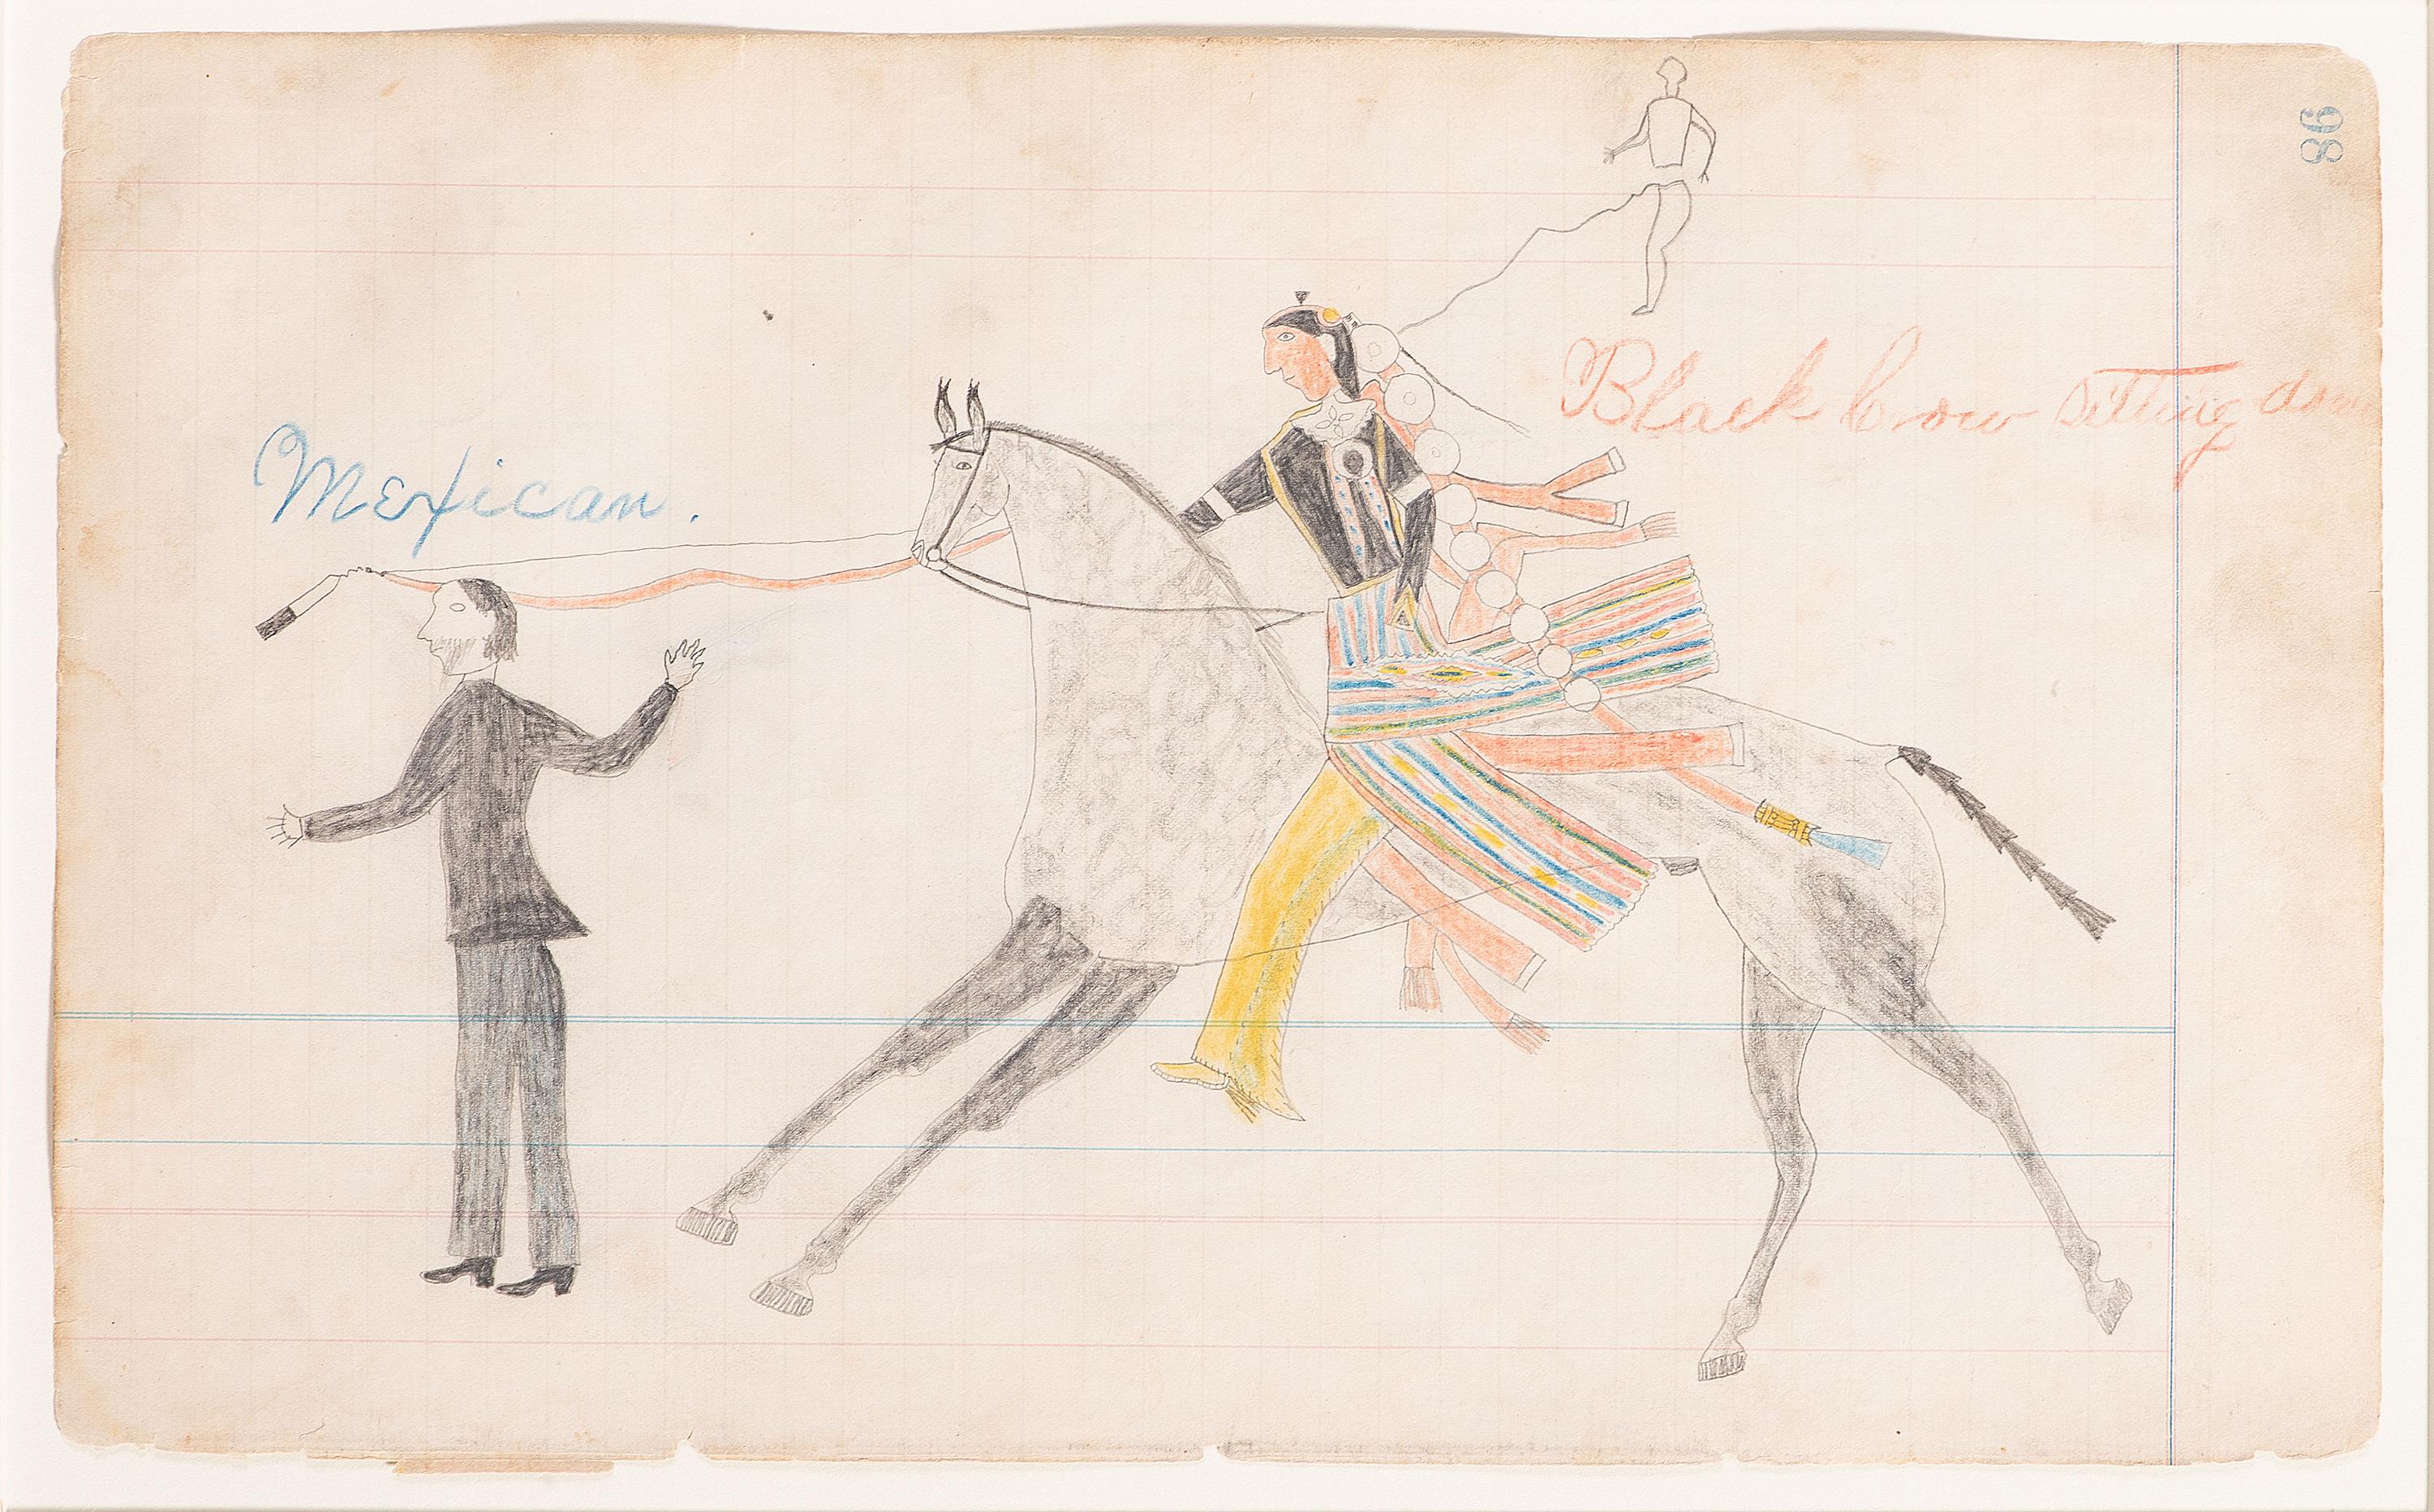 98
Black Cow sitting down
Mexican.